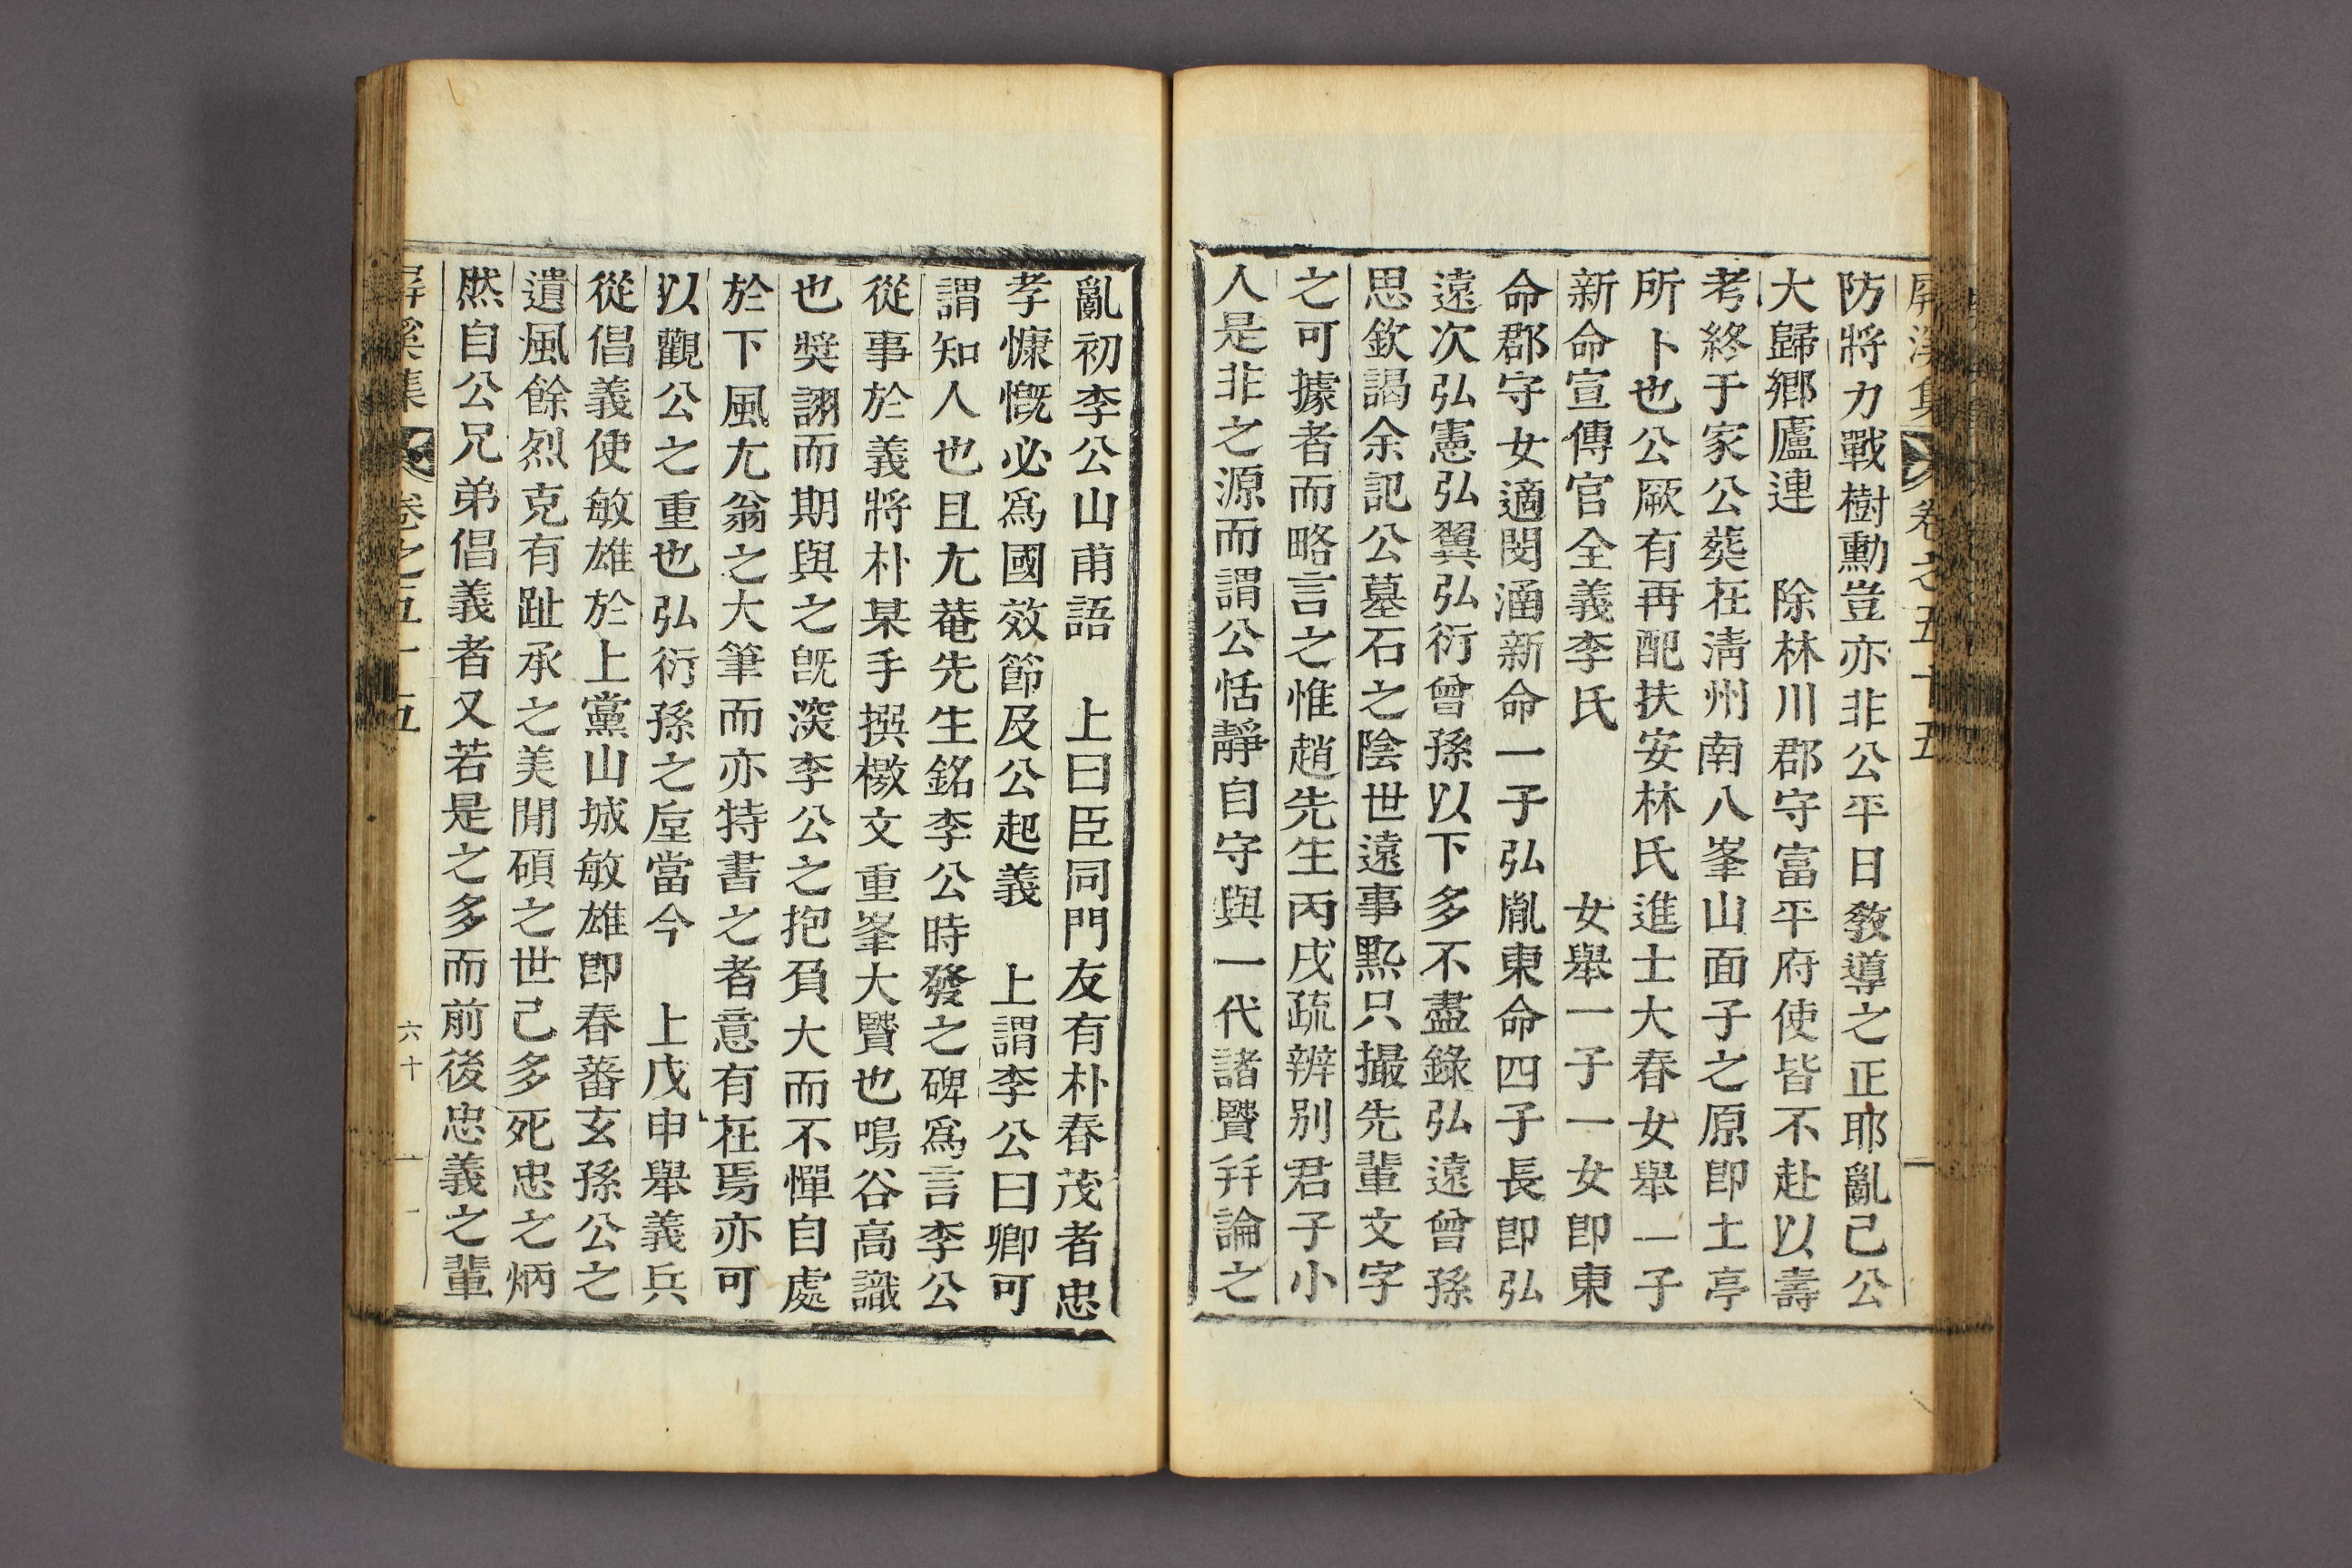 屛溪集 卷之五十五
防將力戰樹勳豈亦非公平日敎導之正耶亂已公
大歸鄕廬連　除林川郡守富平府使皆不赴以壽
考終于家公葬在淸州南八峯山面子之原卽土亭
所卜也公厥有再配扶安林氏進士大春女舉一子
新命宣傳官全義李氏　　　女舉一子一女卽東
命郡守女適閔涵新命一子弘胤東命四子長卽弘
遠次弘憲弘翼弘衍曾孫以下多不盡錄弘遠曾孫
思欽謁余記公墓石之陰世遠事㸃只撮先輩文字
之可據者而略言之惟趙先生丙戌疏辨別君子小
人是非之源而謂公恬靜自守與一代諸賢幷論之
亂初李公山甫語　上曰臣同門友有朴春茂者忠
孝慷慨必爲國效節及公起義　上謂李公曰卿可
謂知人也且尢菴先生銘李公時發之碑爲言李公
從事於義將朴某手撰檄文重峯大賢也鳴谷高識
也奬詡而期與之旣深李公之抱負大而不憚自處
於下風尢翁之大筆而亦特書之者意有在焉亦可
以觀公之重也弘衍孫之垕當今　上戊申舉義兵
從倡義使敏雄於上黨山城敏雄卽春蕃玄孫公之
遺風餘烈克有趾承之美閒碩之世已多死忠之炳
然自公兄弟倡義者又若是之多而前後忠義之輩
屛溪集 卷之五十五 六十一